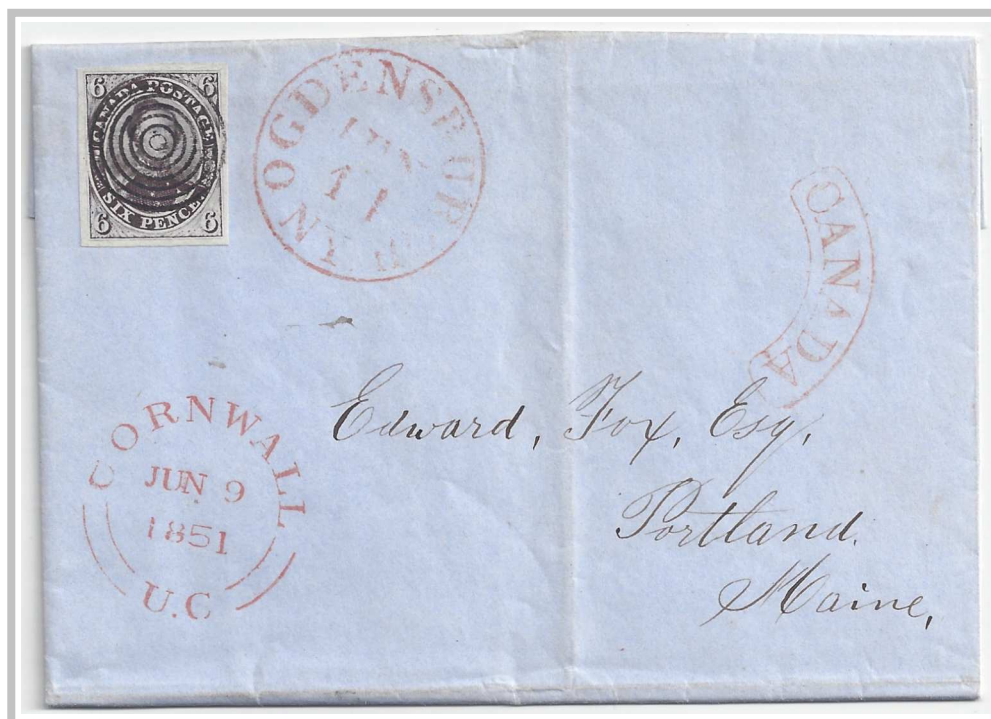 6 6
CANADA POSTAGE
SIX PENCE
6 6
OGDENSBURGH N.Y.
JUN
11
CANADA
CORNWALL
JUN 9
1851
U.C
Edward, Fox, Esq,
Portland.
Maine,